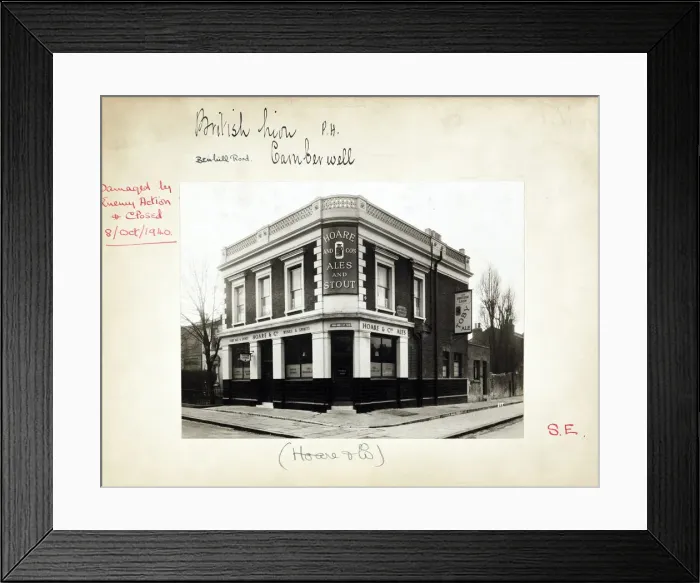 British Lion P.H.
Benhill Road. Camberwell
Damaged by
Enemy Action
& Closed
8/Oct/1940.
HOARE
AND CO'S
ALES
AND
STOUT
HOARE & Co
WINES & SPIRITS
HOARE & Co ALES
ALE
S.E.
(Hoare & Co)